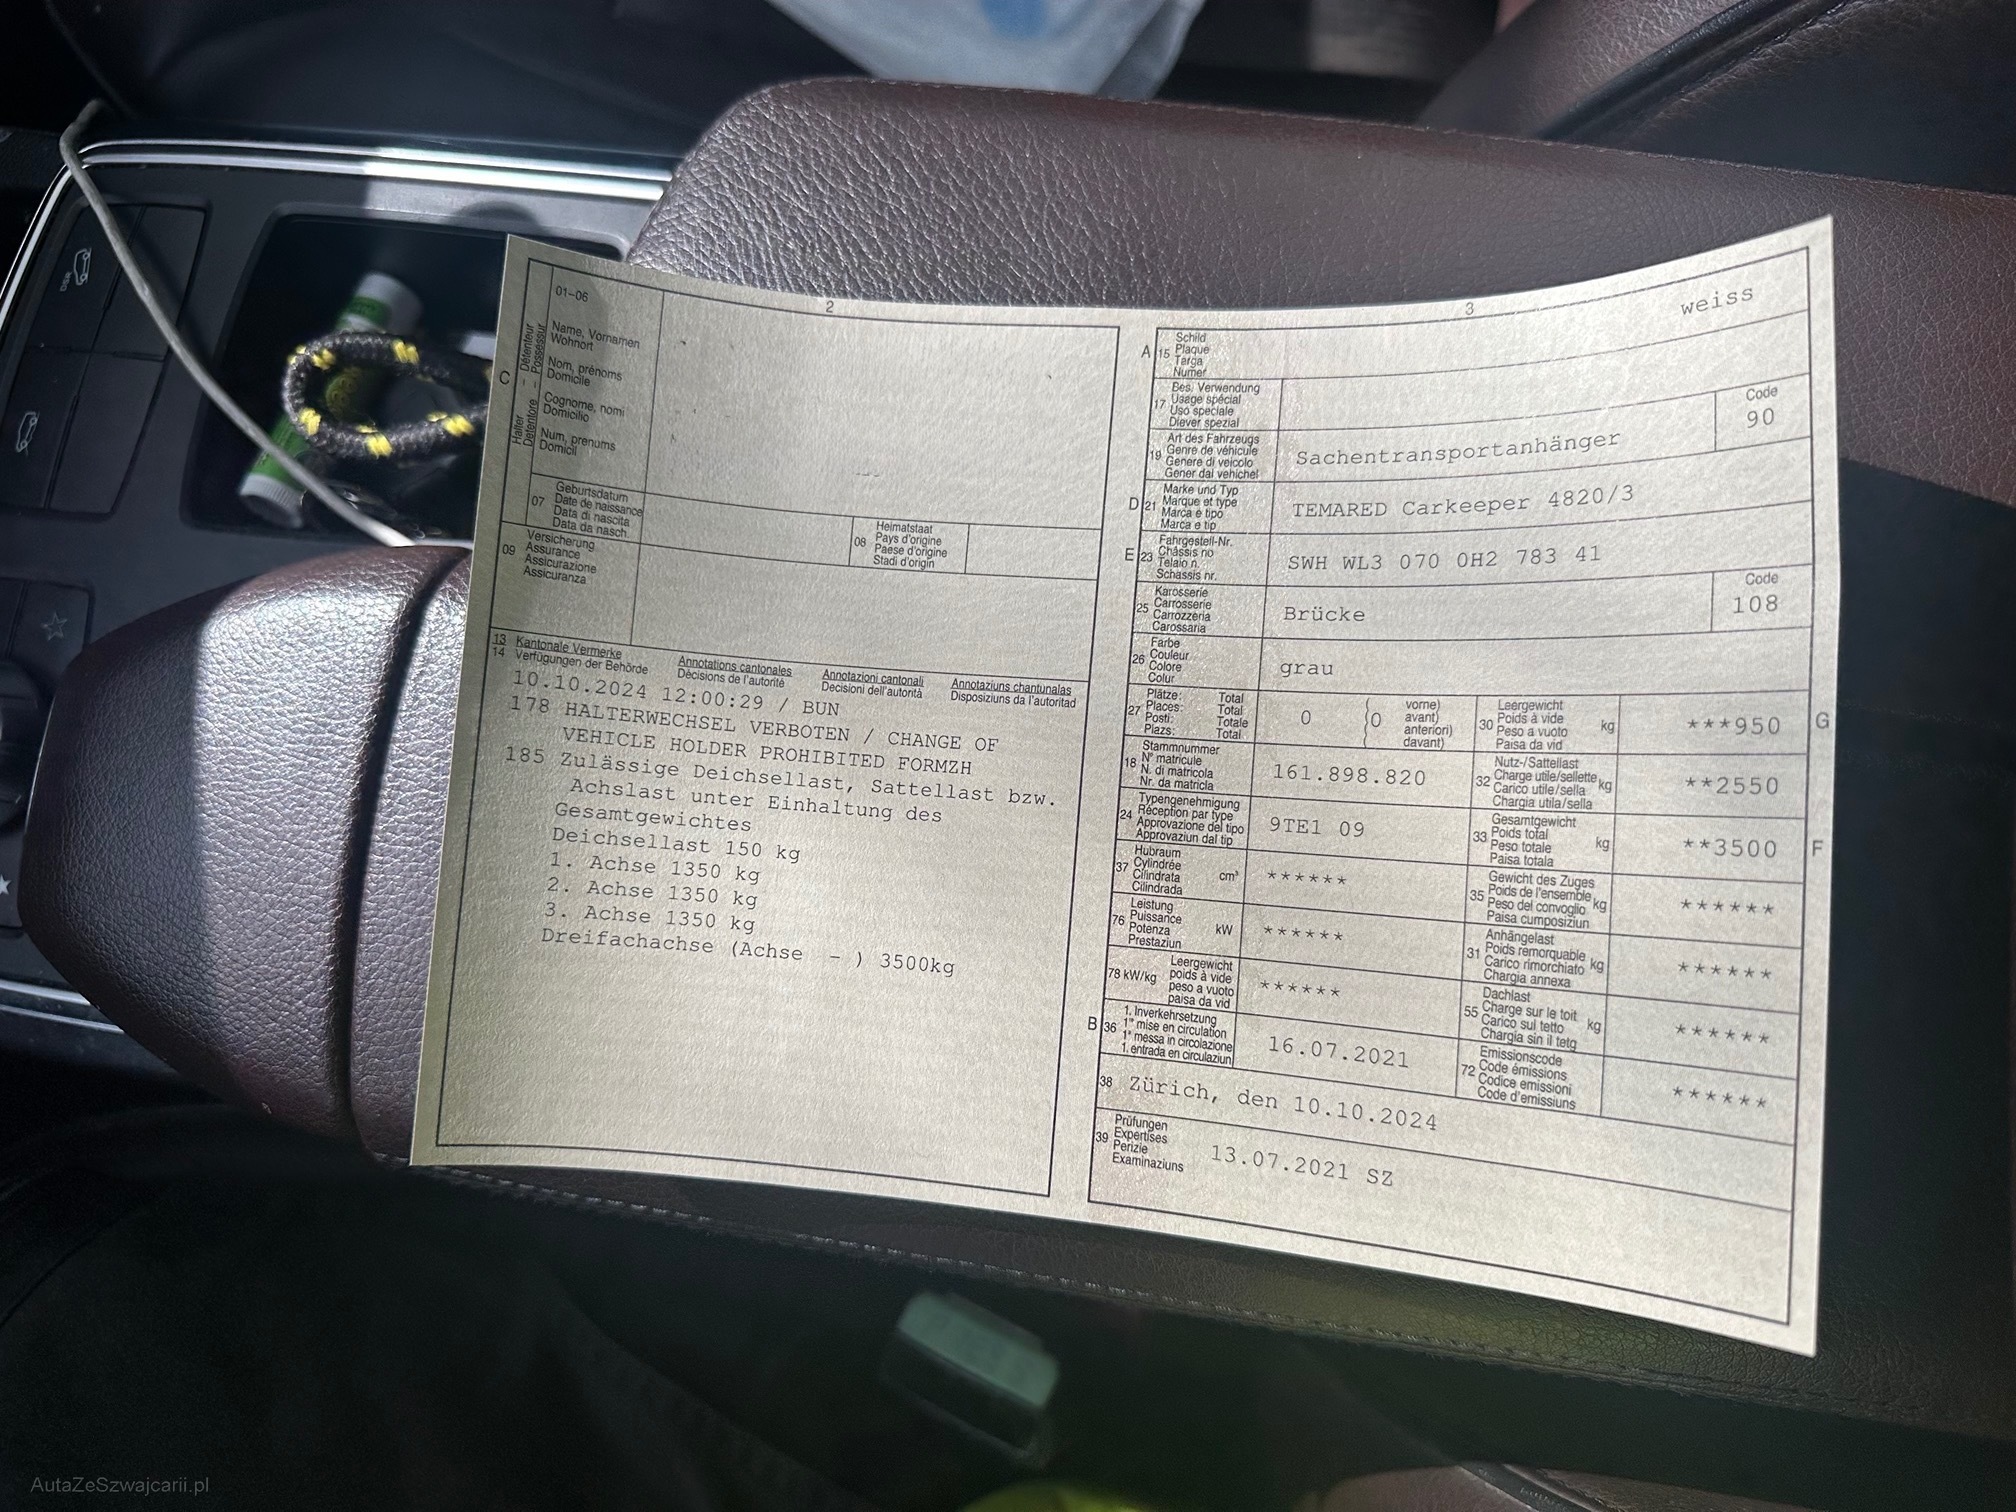 2
01-06
C
Halter – Détenteur
Detentore – Possessur
Name, Vornamen
Wohnort
Nom, prénoms
Domicile
Cognome, nomi
Domicilio
Num, prenums
Domicil
07
Geburtsdatum
Date de naissance
Data di nascita
Data da nasch.
08
Heimatstaat
Pays d'origine
Paese d'origine
Stadi d'origin
09
Versicherung
Assurance
Assicurazione
Assicuranza
13 Kantonale Vermerke Annotations cantonales Annotazioni cantonali Annotaziuns chantunalas
14 Verfügungen der Behörde Décisions de l'autorité Decisioni dell'autorità Disposiziuns da l'autoritad
10.10.2024 12:00:29 / BUN
178 HALTERWECHSEL VERBOTEN / CHANGE OF
VEHICLE HOLDER PROHIBITED FORMZH
185 Zulässige Deichsellast, Sattellast bzw.
Achslast unter Einhaltung des
Gesamtgewichtes
Deichsellast 150 kg
1. Achse 1350 kg
2. Achse 1350 kg
3. Achse 1350 kg
Dreifachachse (Achse - ) 3500kg
3
weiss
A 15
Schild
Plaque
Targa
Numer
17
Bes. Verwendung
Usage spécial
Uso speciale
Diever spezial
Code
90
19
Art des Fahrzeugs
Genre de véhicule
Genere di veicolo
Gener dal vehichel
Sachentransportanhänger
D 21
Marke und Typ
Marque et type
Marca e tipo
Marca e tip
TEMARED Carkeeper 4820/3
E 23
Fahrgestell-Nr.
Châssis no
Telaio n.
Schassis nr.
SWH WL3 070 0H2 783 41
25
Karosserie
Carrosserie
Carrozzeria
Carossaria
Brücke
Code
108
26
Farbe
Couleur
Colore
Colur
grau
27
Plätze: Total
Places: Total
Posti: Totale
Plazs: Total
0
(0
vorne)
avant)
anteriori)
davant)
30
Leergewicht
Poids à vide kg
Peso a vuoto
Paisa da vid
***950
G
18
Stammnummer
N° matricule
N. di matricola
Nr. da matricla
161.898.820
32
Nutz-/Sattellast
Charge utile/sellette kg
Carico utile/sella
Chargia utila/sella
**2550
24
Typengenehmigung
Réception par type
Approvazione del tipo
Approvaziun dal tip
9TE1 09
33
Gesamtgewicht
Poids total kg
Peso totale
Paisa totala
**3500
F
37
Hubraum
Cylindrée cm³
Cilindrata
Cilindrada
******
35
Gewicht des Zuges
Poids de l'ensemble kg
Peso del convoglio
Paisa cumposiziun
******
76
Leistung
Puissance kW
Potenza
Prestaziun
******
31
Anhängelast
Poids remorquable kg
Carico rimorchiato
Chargia annexa
******
78 kW/kg
Leergewicht
poids à vide
peso a vuoto
paisa da vid
******
55
Dachlast
Charge sur le toit kg
Carico sul tetto
Chargia sin il tetg
******
B 36
1. Inverkehrsetzung
1re mise en circulation
1a messa in circolazione
1. entrada en circulaziun
16.07.2021
72
Emissionscode
Code émissions
Codice emissioni
Code d'emissiuns
******
38 Zürich, den 10.10.2024
39
Prüfungen
Expertises
Perizie
Examinaziuns
13.07.2021 SZ
AutaZeSzwajcarii.pl